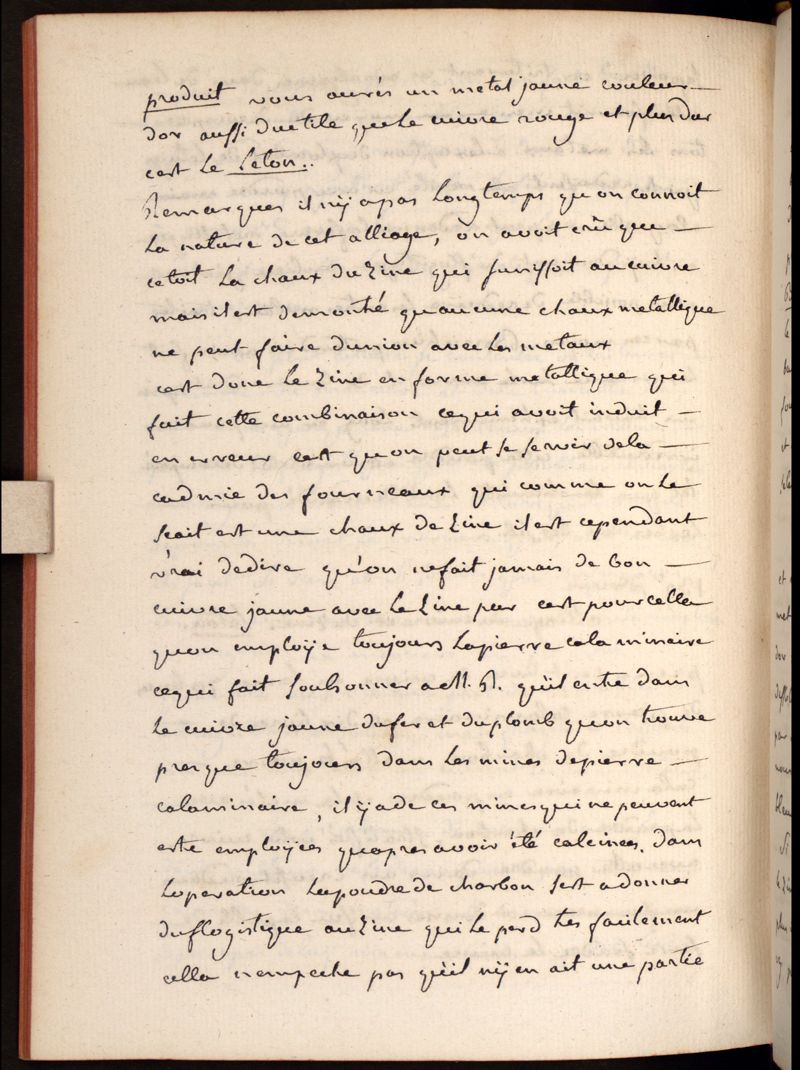 produit vous aurés un metal jaune couleur
dor aussi ductile que le cuivre rouge et plus dur
cest le leton..
Remarques il nÿ a pas longtemps qu on connoit
la nature de cet alliage, on avoit crû que
cetoit la chaux du zinc qui sunissoit au cuivre
mais il est demontré qu aucune chaux metallique
ne peut faire dunion avec les metaux
cest donc le zinc en forme metallique qui
fait cette combinaison cequi avoit induit
en erreur cest qu on peut se servir dela
cadmie des fourneaux qui comme on le
scait est une chaux de zinc il est cependant
vrai dedire qu'on nefait jamais de bon
cuivre jaune avec le zinc pur cest pour cella
quon employe toujours lapierre calaminaire
cequi fait soubsonner a M. R. qu'il entre dans
le cuivre jaune dufer et duplomb quon trouve
presque toujours dans les mines depierre
calaminaire, il ÿ a de ces mines qui ne peuvent
estre employees quapres avoir été calcinees. dans
loperation lapoudre de charbon sert a donner
duflogistique au zinc qui le perd tres facilement
cella nempeche pas qu'il nÿ en ait une partie